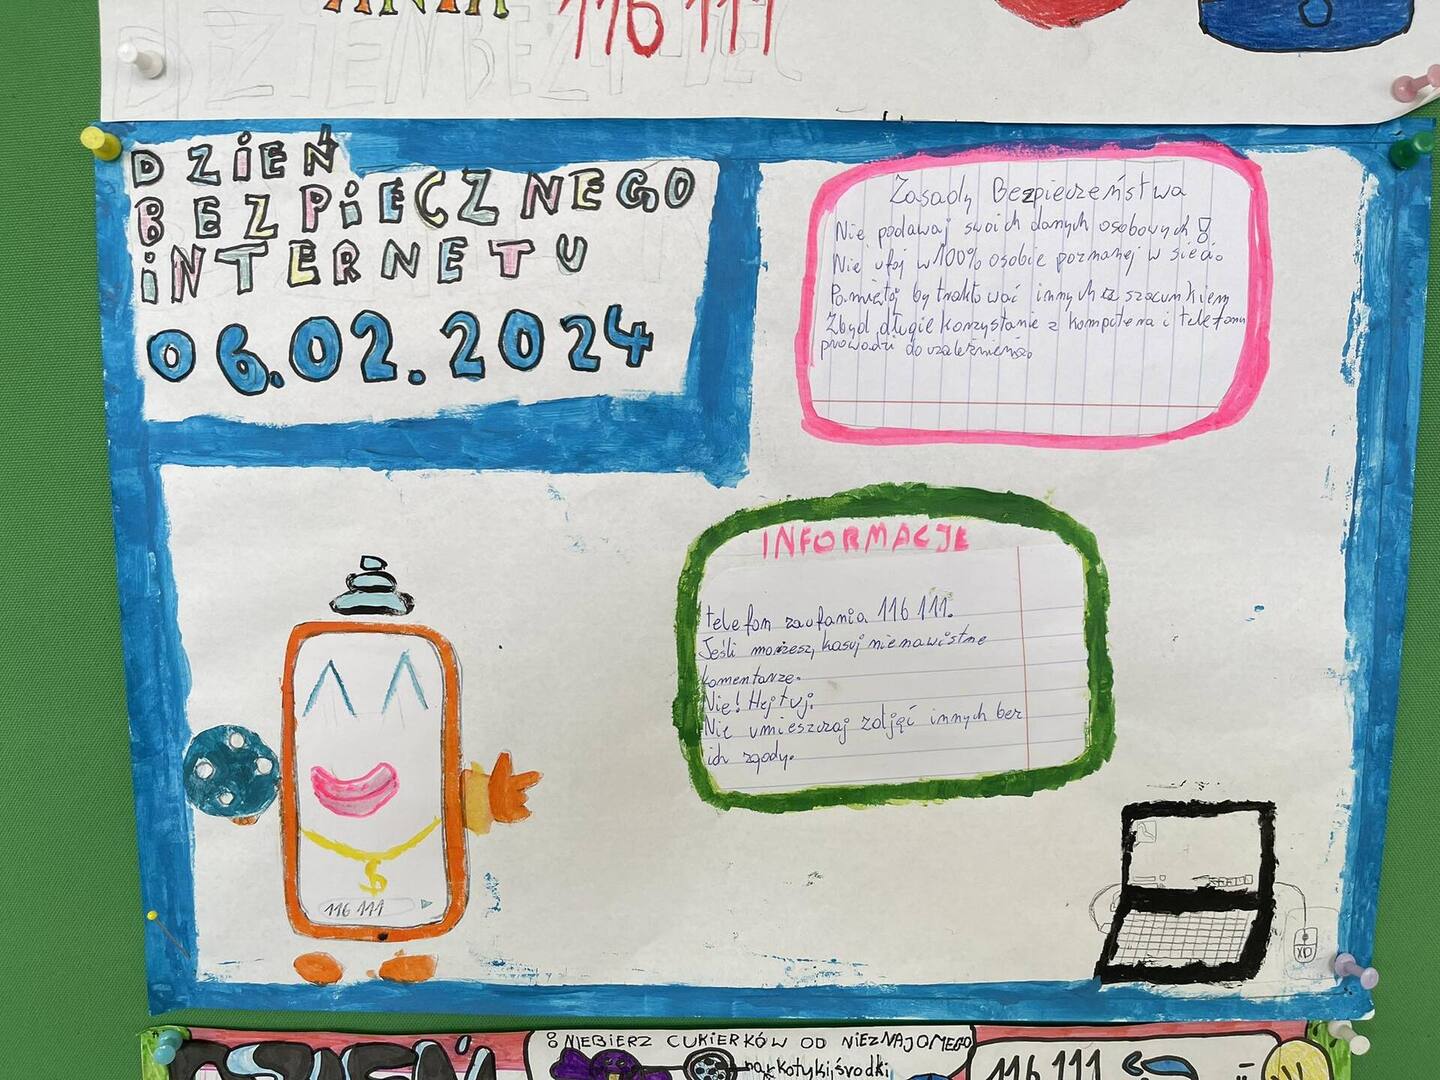 116 111
DZIEŃ BEZPIEC
DZiEŃ
BEZPiECZNEGO
iNTERNETU
06.02.2024
Zasady Bezpieczeństwa
Nie podawaj swoich danych osobowych!
Nie ufaj w 100% osobie poznanej w sieci.
Pamiętaj by traktować innych z szacunkiem
Zbyd długie korzystanie z komputera i telefonu
prowadzi do uzależnienia.
INFORMACJE
telefon zaufania 116 111.
Jeśli możesz, kasuj nienawistne
komentarze.
Nie! Hejtuj.
Nie umieszczaj zdjęć innych bez
ich zgody.
$
116 111
XD
NIEBIERZ CUKIERKÓW OD NIEZNAJOMEGO
narkotyki, środki
116 111
DZIEŃ